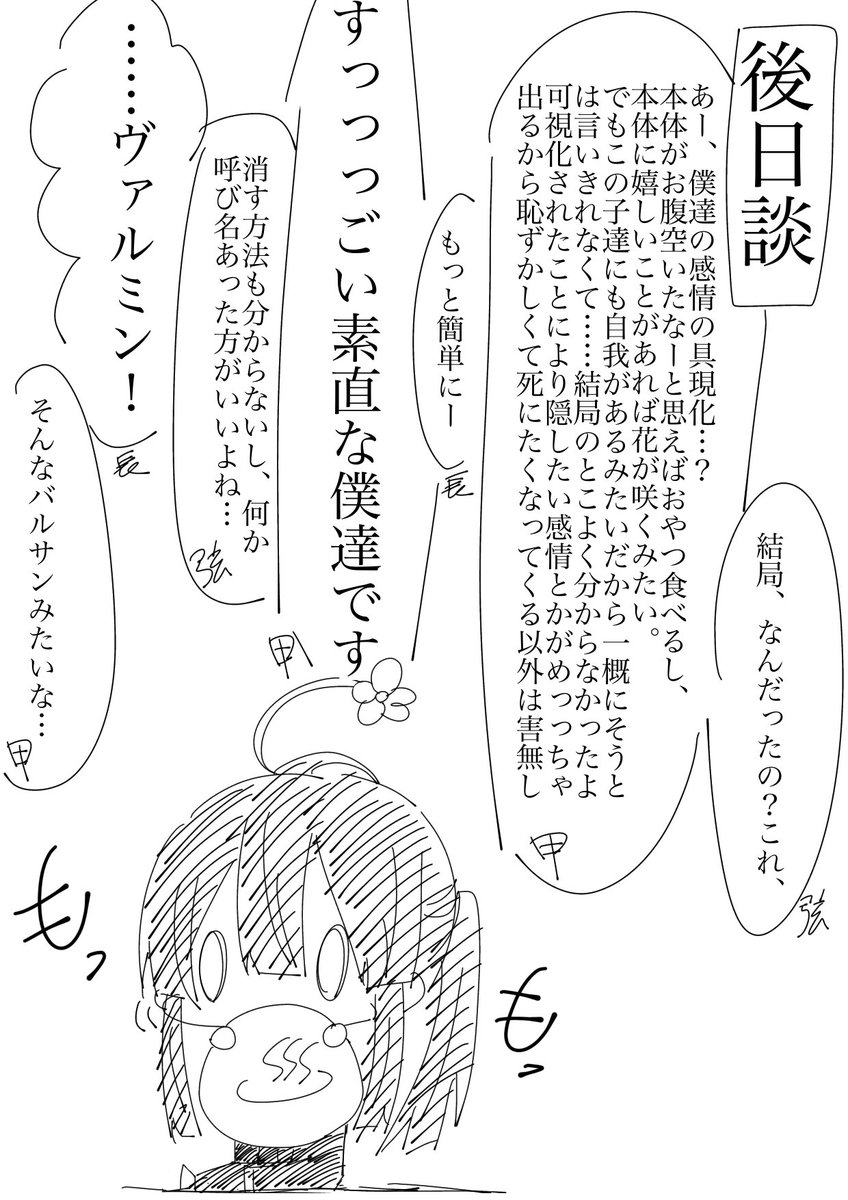 後日談
結局、なんだったの？これ、
弦
あー、僕達の感情の具現化…？
本体がお腹空いたなーと思えばおやつ食べるし、
本体に嬉しいことがあれば花が咲くみたい。
でもこの子達にも自我があるみたいだから一概にそうと
は言いきれなくて……結局のとこよく分からなかったよ
可視化されたことにより隠したい感情とかがめっっちゃ
出るから恥ずかしくて死にたくなってくる以外は害無し
甲
もっと簡単にー
長
すっっっごい素直な僕達です
甲
消す方法も分からないし、何か
呼び名あった方がいいよね…
弦
……ヴァルミン！
長
そんなバルサンみたいな…
甲
もっ
もっ